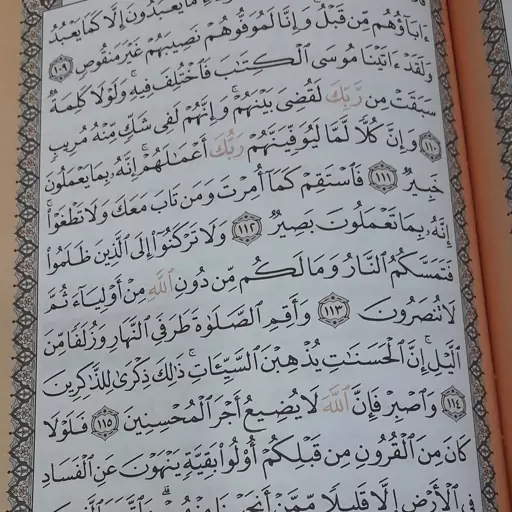 مَا يَعْبُدُونَ إِلَّا كَمَا يَعْبُدُ
ءَابَآؤُهُم مِّن قَبْلُ ۚ وَإِنَّا لَمُوَفُّوهُمْ نَصِيبَهُمْ غَيْرَ مَنقُوصٍ ١٠٩
وَلَقَدْ ءَاتَيْنَا مُوسَى ٱلْكِتَٰبَ فَٱخْتُلِفَ فِيهِ ۚ وَلَوْلَا كَلِمَةٌ
سَبَقَتْ مِن رَّبِّكَ لَقُضِىَ بَيْنَهُمْ ۚ وَإِنَّهُمْ لَفِى شَكٍّ مِّنْهُ مُرِيبٍ
١١٠ وَإِنَّ كُلًّا لَّمَّا لَيُوَفِّيَنَّهُمْ رَبُّكَ أَعْمَٰلَهُمْ ۚ إِنَّهُۥ بِمَا يَعْمَلُونَ
خَبِيرٌ ١١١ فَٱسْتَقِمْ كَمَآ أُمِرْتَ وَمَن تَابَ مَعَكَ وَلَا تَطْغَوْا۟ ۚ
إِنَّهُۥ بِمَا تَعْمَلُونَ بَصِيرٌ ١١٢ وَلَا تَرْكَنُوٓا۟ إِلَى ٱلَّذِينَ ظَلَمُوا۟
فَتَمَسَّكُمُ ٱلنَّارُ وَمَا لَكُم مِّن دُونِ ٱللَّهِ مِنْ أَوْلِيَآءَ ثُمَّ
لَا تُنصَرُونَ ١١٣ وَأَقِمِ ٱلصَّلَوٰةَ طَرَفَىِ ٱلنَّهَارِ وَزُلَفًا مِّنَ
ٱلَّيْلِ ۚ إِنَّ ٱلْحَسَنَٰتِ يُذْهِبْنَ ٱلسَّيِّـَٔاتِ ۚ ذَٰلِكَ ذِكْرَىٰ لِلذَّٰكِرِينَ
١١٤ وَٱصْبِرْ فَإِنَّ ٱللَّهَ لَا يُضِيعُ أَجْرَ ٱلْمُحْسِنِينَ ١١٥ فَلَوْلَا
كَانَ مِنَ ٱلْقُرُونِ مِن قَبْلِكُمْ أُو۟لُوا۟ بَقِيَّةٍ يَنْهَوْنَ عَنِ ٱلْفَسَادِ
فِى ٱلْأَرْضِ إِلَّا قَلِيلًا مِّمَّنْ أَنجَيْنَا مِنْهُمْ ۗ وَٱتَّبَعَ